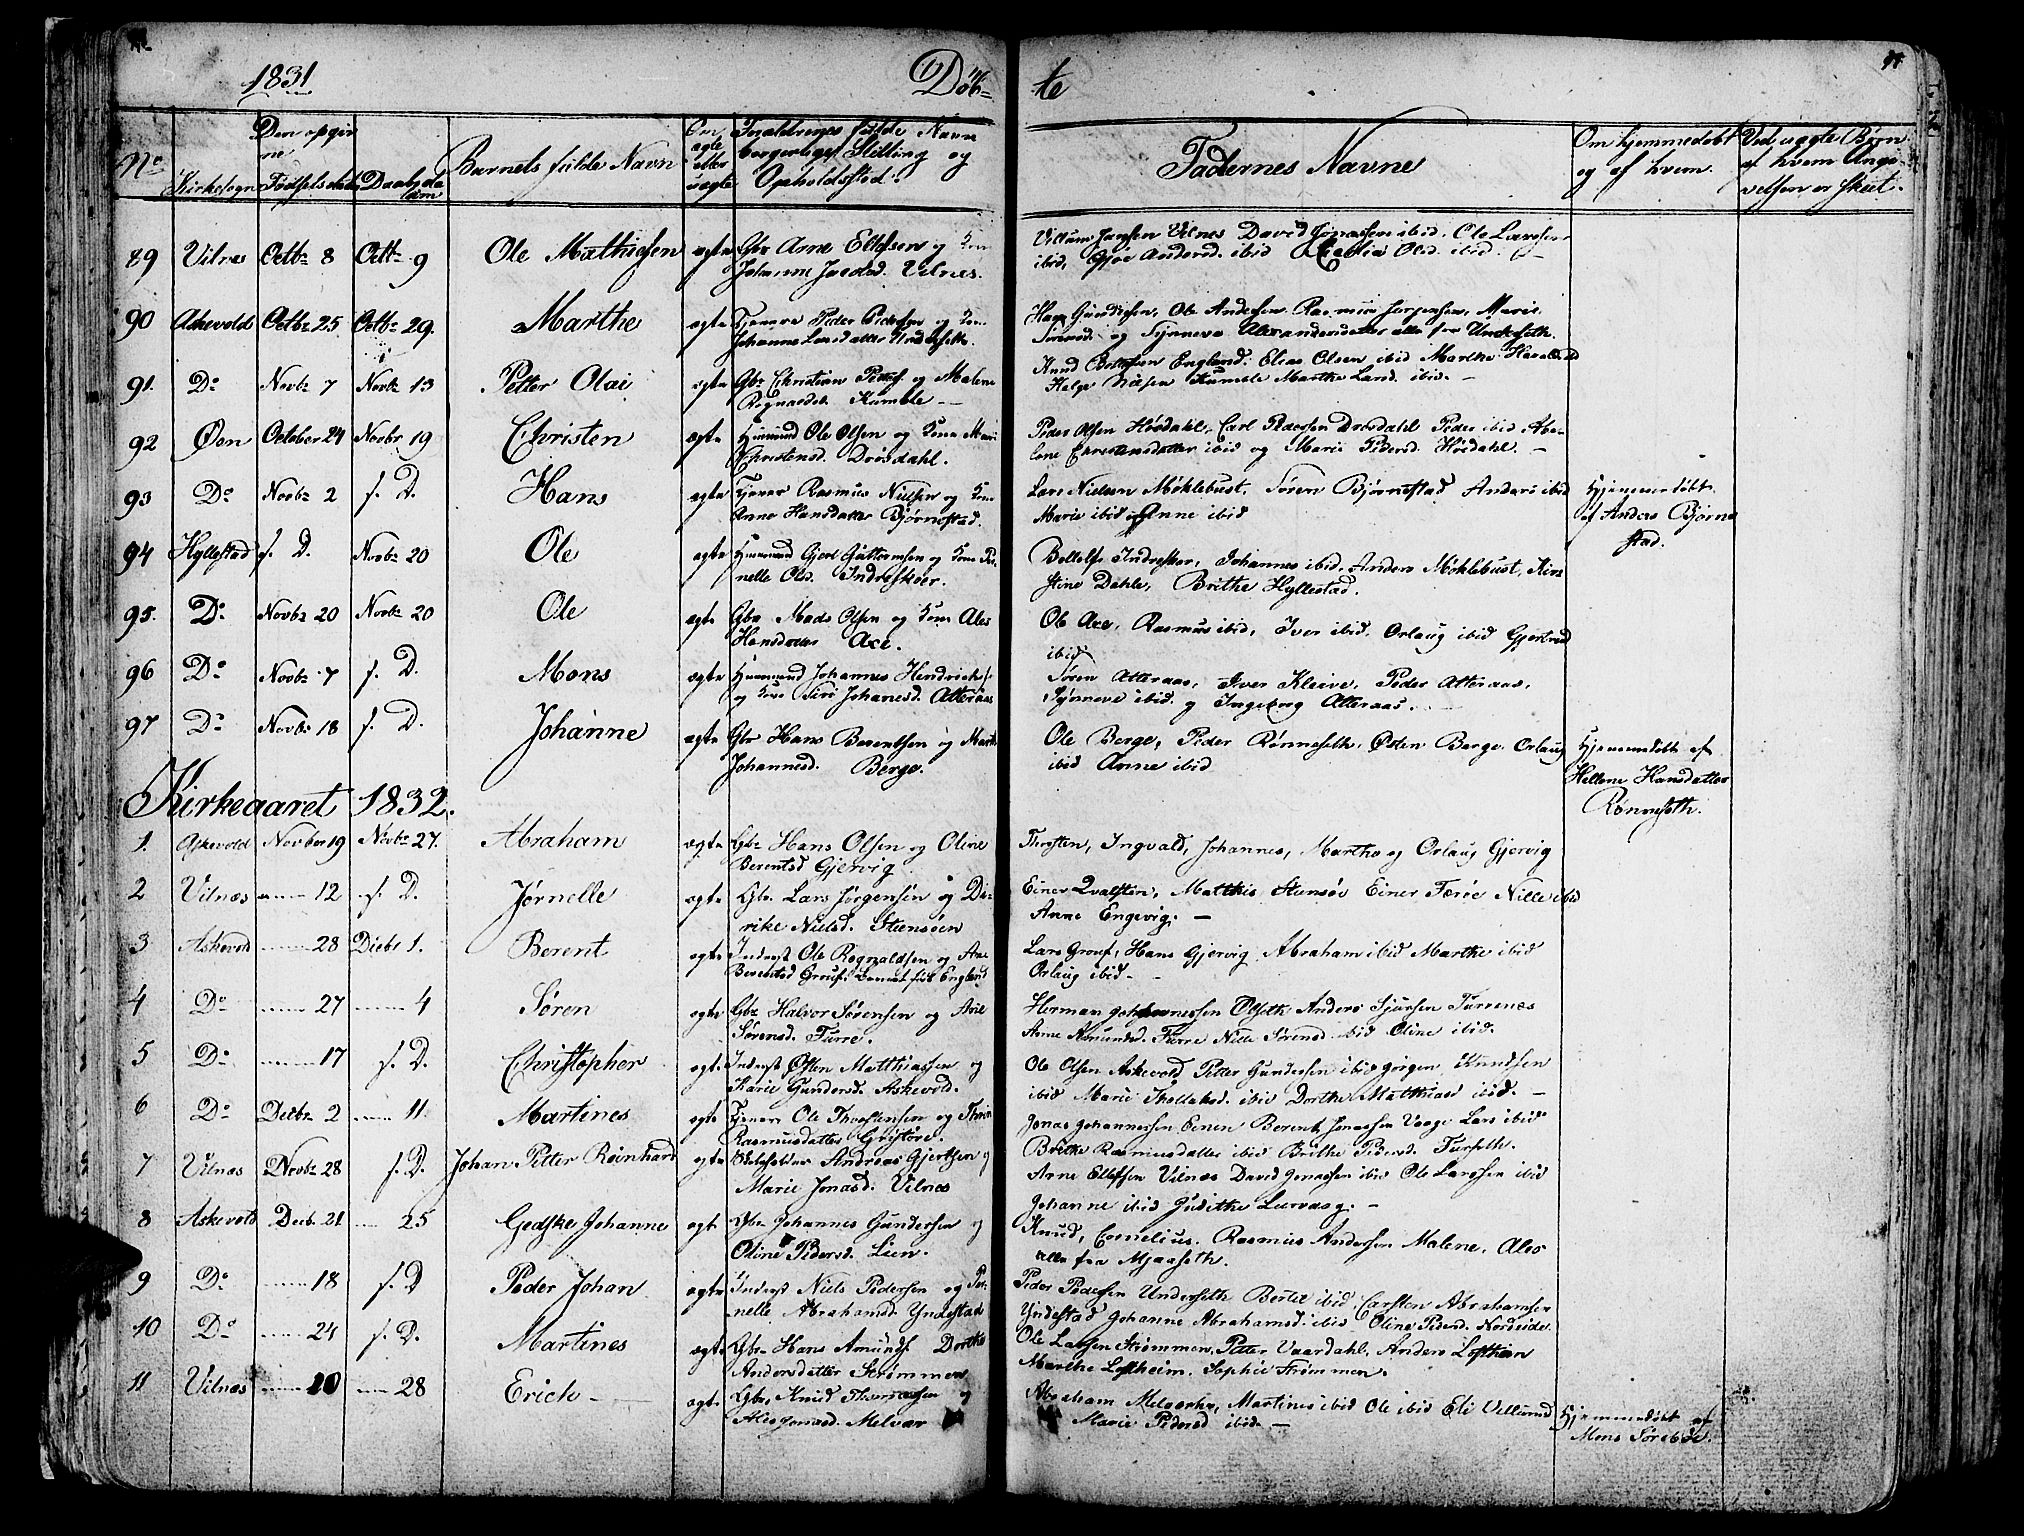 1831
Døb=
te
No
Kirkesogn
Den opgivne Fødselsdato
Daabsdatum
Barnets fulde Navn
Om ægte eller uægte
Forældrenes fulde Navn borgerlige Stilling og Opholdssted.
Faddernes Navne
Om hjemmedøbt og af hvem.
Ved uægte Børn af hvem Angivelsen er skeet.
89 Vilnes Octbr 8 Octbr 9 Ole Mathissen ægte Gbr Arne Ellefsen og Kone
Johanne Vilnes.
Villum Jansen Vilnes David Jonassen ibid. Ole Larssen
ibid. Gjøe Andersd. ibid Cecelia Olsd. ibid.
90 Askevold Octbr 25 Octbr 29. Marthe ægte Peder Pedersen og Kone
Johanne Larsdatter Underseth.
Ole Andersen Rasmus Jørgensen, Marie
og Synneva Alexandersdatter alle fra Underseth.
91. Do Novbr 7 Novbr 13 Petter Olai ægte Gbr Christian Peders. og Malene
Rognaldsd. Kumble
Knud England. Elias Olsen ibid Marthe
Helge Nilsen Kumble Marthe Larsd. ibid.
92 Øen October 24 Novbr 19 Christen ægte Huusmand Ole Olsen og Kone Mari
Christensd. Drøsdahl.
Peder Olsen Høsdahl, Carl Pedersen Drøsdahl Peder ibid Abe-
lone Christensdatter ibid og Marie Pedersd. Høsdahl.
93 Do Novbr 2 s. D. Hans ægte Rasmus Nielsen og Kone
Anne Hansdatter Bjørnestad.
Lars Nielsen Møklebust. Søren Bjørnestad Anders ibid
Marie ibid Anne ibid
Hjemmedøbt
af Anders Bjørne
stad.
94 Hyllestad s. D. Novbr 20 Ole ægte Huusmand Guttormsen og Kone Per-
nelle Olsd. Indreskier.
Indreskier, Johannes ibid. Anders Møklebust,
Stine Dahle, Brithe Hyllestad.
95. Do Novbr 20 Novbr 20 Ole ægte Gbr Mads Olsen og Kone Ales
Hansdatter Axe.
Ole Axe. Rasmus ibid, Iver ibid. Orlaug ibid Gjertrud
ibid
96 Do Novbr 7 s. D. Mons ægte Huusmand Johannes Hendriks.
og Kone Siri Johanesd. Atteraas
Søren Atteraas, Iver Kleive, Peder Atteraas.
Synneve ibid. og Ingeborg Atteraas.
97 Do Novbr 18 s. D. Johanne ægte Gbr Hans Berentsen og Marthe
Johannesd. Berge.
Ole Berge, Peder Rønneseth. Østen Berge. Orlaug
ibid Anne ibid
Hjemmedøbt af
Hellene Hansdatter
Rønneseth.
Kirkeaaret 1832.
1. Askevold Novber 19 Novbr 27. Abraham ægte Gbr Hans Olsen og Oline
Berentsd Gjervig
Thorsten, Ingvald, Johannes, Marthe og Orlaug Gjervig
2 Vilnæs 12 s. D. Jørnelle ægte Gbr. Lars Jørgensen og Di-
rike Nielsd. Steensøen
Einer Qvalsten, Matthis Stensøe Einer Færøe Nille ibid
Anne Engevig.
3 Askevold 28 Decbr 1. Berent ægte Inderst Ole Rognaldsen og Ane
Berentsd
Lars Hans Gjervig Abraham ibid Marthe ibid
Orlaug ibid
4 Do 27 4 Søren ægte Gbr Halvor Sørensen og Ane
Sørensd. Furre.
Herman Johannessen Olseth Anders Sjursen Furrenes
Anne Amundsd. Furre Nille Sørensd. ibid Oline ibid.
5 Do 17 s. D. Christopher ægt. Inderst Østen Matthiassen og
Karie Gundersd. Askevold.
Ole Olsen Askevold Petter Gundersen ibid Jørgen Knudsen
ibid Marie ibid Dorthe Matthiasd ibid.
6 Do Decbr 2 11. Martines ægte Ole Thorstensen og
Rasmusdatter
Jonas Johannessen Berent Jonassen Vaage Lars ibid
Brithe Rasmusdatter ibid Brithe Pedersd.
7 Vilnæs Novbr 28 s. D. Johan Petter Reinhard ægte Skoleholder Andreas Gjertsen og
Marie Jonasd. Vilnes
Arne Ellefsen Vilnæs David Jonassen ibid Ole Larssen ibid
Johanne ibid Judithe
8 Askevold Decb. 21 25 Gedske Johanne ægt. Gbr. Johannes Gundersen og
Oline Pedersd. Lien.
Knud, Cornelius. Rasmus Andersen Malene. Ales
alle fra Mjaaseth.
9 Do 18 s. D Peder Johan ægte Inderst Niels Pedersen og Per-
nelle Abrahamsd. Yndestad
Peder Pedersen Underseth Berthe ibid Carsten Abrahamsen
Yndestad Johanne Abrahamsd. ibid Oline Pedersd. Nordeide.
10 Do 24 s. D. Martines ægte Gbr. Hans Amunds. Dorthe
Andersdatter Strømmen
Ole Larsen Strømmen, Petter Vaardahl. Anders Loftheim
Marthe Loftheim. Sophie Strømmen.
11 Vilnæs 20 28 Erich ægte Gbr. Knud Thomassen og
Ales Jonasd. Melvær
Abraham Melværhr, Martines ibid Ole ibid Eli Villumsd
Marie Pedersd ibid.
Hjemmedøbt af
Mons Sørebøe.